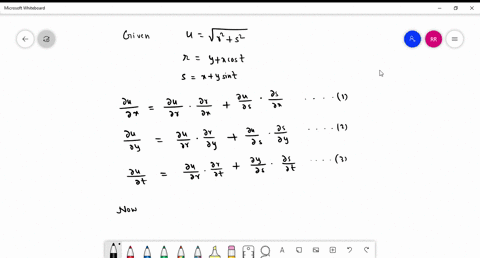 Microsoft Whiteboard
RR
Given u = √(r² + s²)
r = y + x cos t
s = x + y sin t
∂u/∂x = ∂u/∂r · ∂r/∂x + ∂u/∂s · ∂s/∂x ....(1)
∂u/∂y = ∂u/∂r · ∂r/∂y + ∂u/∂s · ∂s/∂y ....(2)
∂u/∂t = ∂u/∂r · ∂r/∂t + ∂y/∂s · ∂s/∂t ....(3)
Now